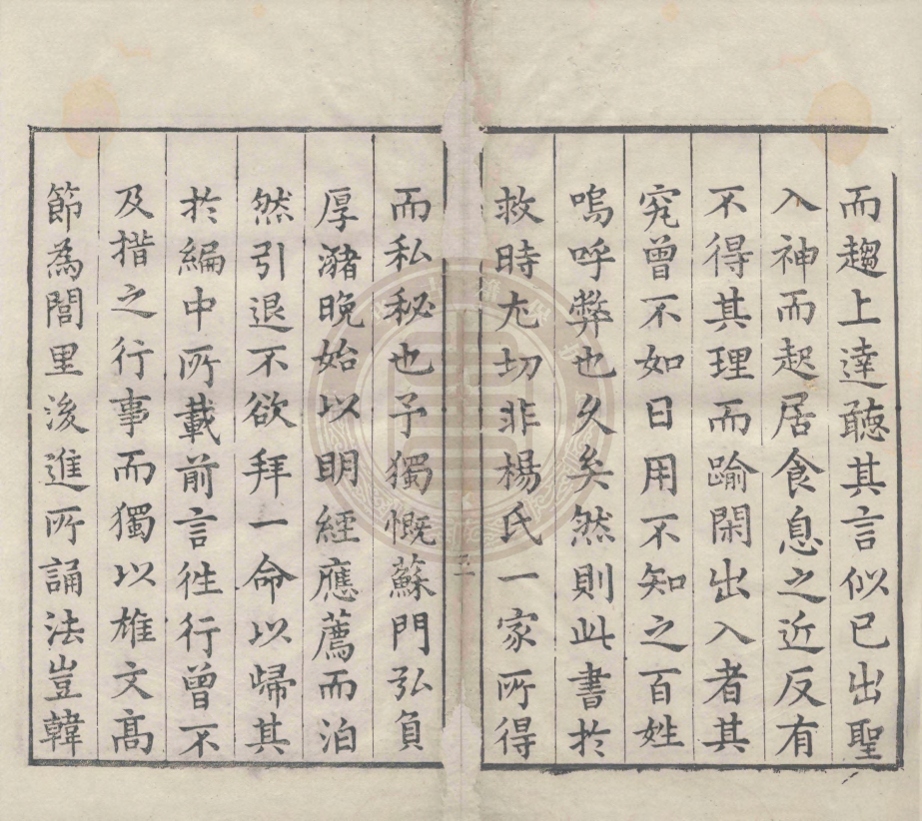 而趨上達聽其言似已出聖
入神而起居食息之近反有
不得其理而踰閑出入者其
究曾不如日用不知之百姓
嗚呼弊也久矣然則此書於
救時尤切非楊氏一家所得
而私秘也予獨慨蘇門弘負
厚瀦晚始以明經應薦而泊
然引退不欲拜一命以歸其
於編中所載前言徃行曾不
及措之行事而獨以雄文高
節為閭里後進所誦法豈韓